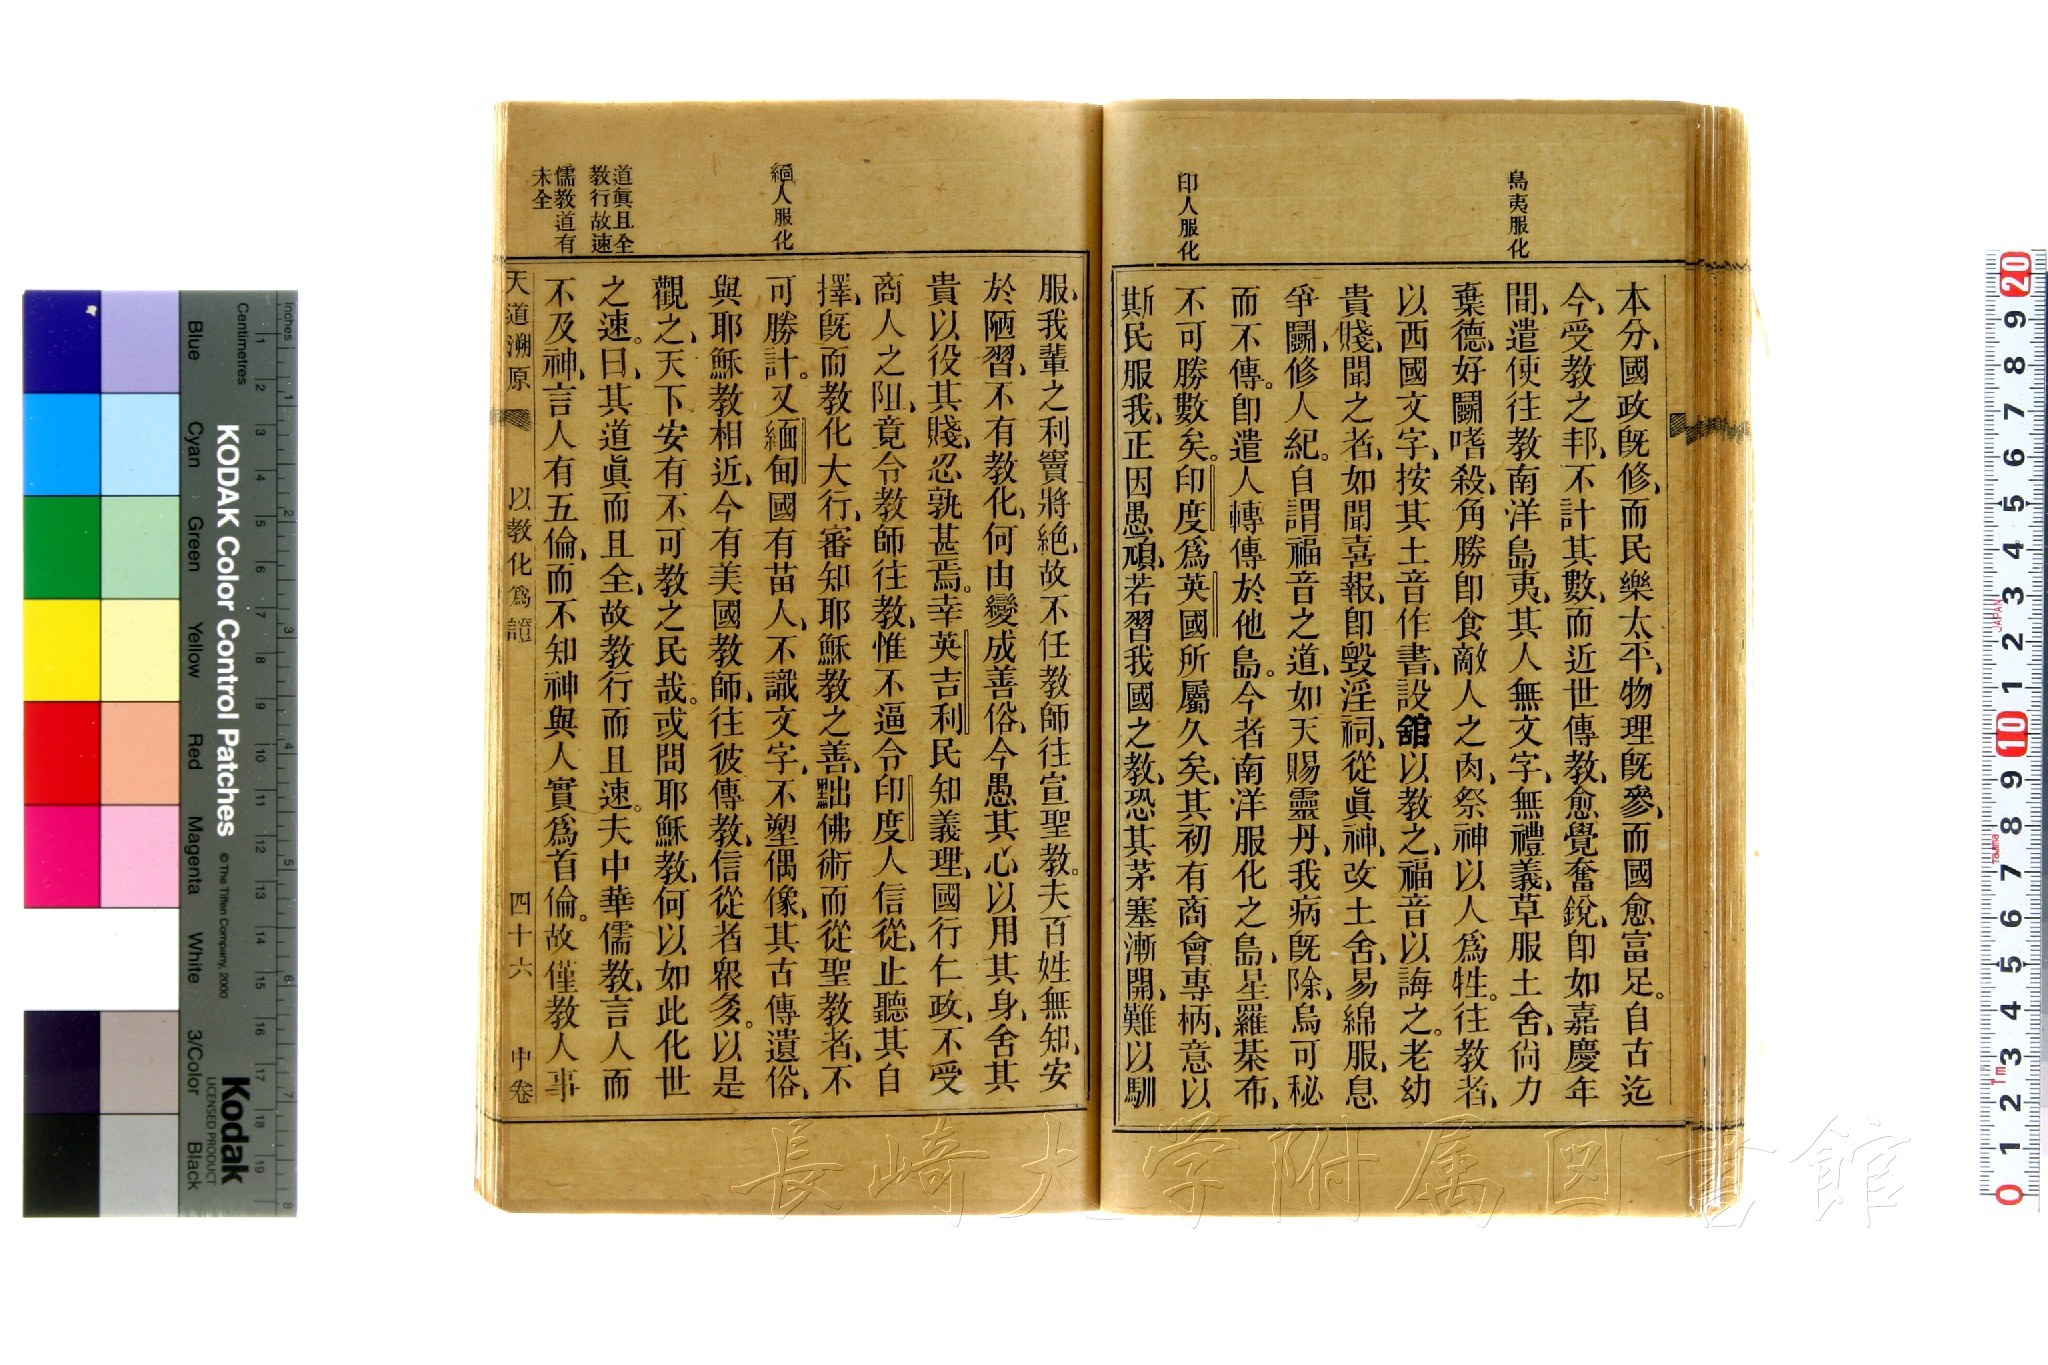 島夷服化
印人服化
本分、國政既修、而民樂太平、物理既參、而國愈富足。自古迄
今、受教之邦、不計其數、而近世傳教、愈覺奮銳、即如嘉慶年
間、遣使往教南洋島夷、其人無文字、無禮義、草服土舍、尚力
棄德、好鬭嗜殺、角勝即食敵人之肉、祭神以人爲牲。往教者、
以西國文字、按其土音作書、設舘以教之、福音以誨之。老幼
貴賤、聞之者、如聞喜報、即毀淫祠、從眞神、改土舍、易綿服、息
爭鬭、修人紀。自謂福音之道、如天賜靈丹、我病既除、烏可秘
而不傳。即遣人轉傳於他島。今者南洋服化之島、星羅棊布、
不可勝數矣。印度爲英國所屬久矣、其初有商會專柄、意以
斯民服我、正因愚頑、若習我國之教、恐其茅塞漸開、難以馴
緬人服化
道眞且全
教行故速
儒教道有
未全
服、我輩之利竇將絕、故不任教師往宣聖教。夫百姓無知、安
於陋習、不有教化、何由變成善俗、今愚其心以用其身、舍其
貴以役其賤、忍孰甚焉。幸英吉利民知義理、國行仁政、不受
商人之阻、竟令教師往教、惟不逼令印度人信從、止聽其自
擇、既而教化大行、審知耶穌教之善、黜佛術而從聖教者、不
可勝計。又緬甸國有苗人、不識文字、不塑偶像、其古傳遺俗、
與耶穌教相近、今有美國教師、往彼傳教、信從者衆多。以是
觀之、天下安有不可教之民哉。或問耶穌教、何以如此化世
之速。曰、其道眞而且全、故教行而且速。夫中華儒教、言人而
不及神、言人有五倫、而不知神與人實爲首倫。故僅教人事
天道溯原
以教化爲證
四十六
中卷
長崎大学附属図書館
KODAK Color Control Patches
© The Tiffen Company, 2000
Kodak
LICENSED PRODUCT
Inches
Centimetres
Blue
Cyan
Green
Yellow
Red
Magenta
White
3/Color
Black
1 2 3 4 5 6 7 8 9 10 11 12 13 14 15 16 17 18 19
1 2 3 4 5 6 7 8
20
9
8
7
6
5
4
3
JAPAN
2
1
10
9
8
Tajima
7
6
5
4
3
1m
2
1
0